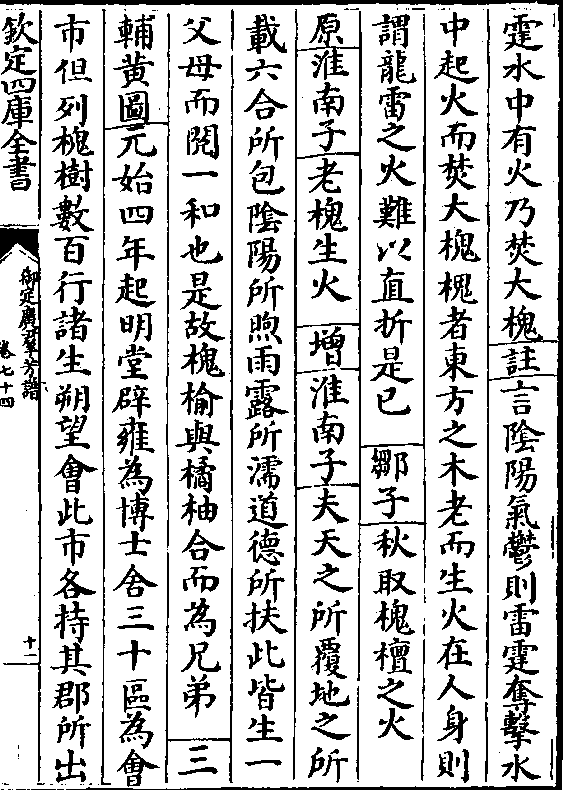 霆水中有火乃焚大槐註言陰陽氣鬱則雷霆奪擊水
中起火而焚大槐槐者東方之木老而生火在人身則
謂龍雷之火難以直折是已鄒子秋取槐檀之火
原淮南子老槐生火增淮南子夫天之所覆地之所
載六合所包陰陽所煦雨露所濡道德所扶此皆生一
父母而閱一和也是故槐榆與橘柚合而為兄弟三
輔黄圖元始四年起明堂辟雍為博士舍三十區為會
市但列槐樹數百行諸生朔望會此市各持其郡所出
欽定四庫全書
御定廣羣芳譜
卷七十四
十一